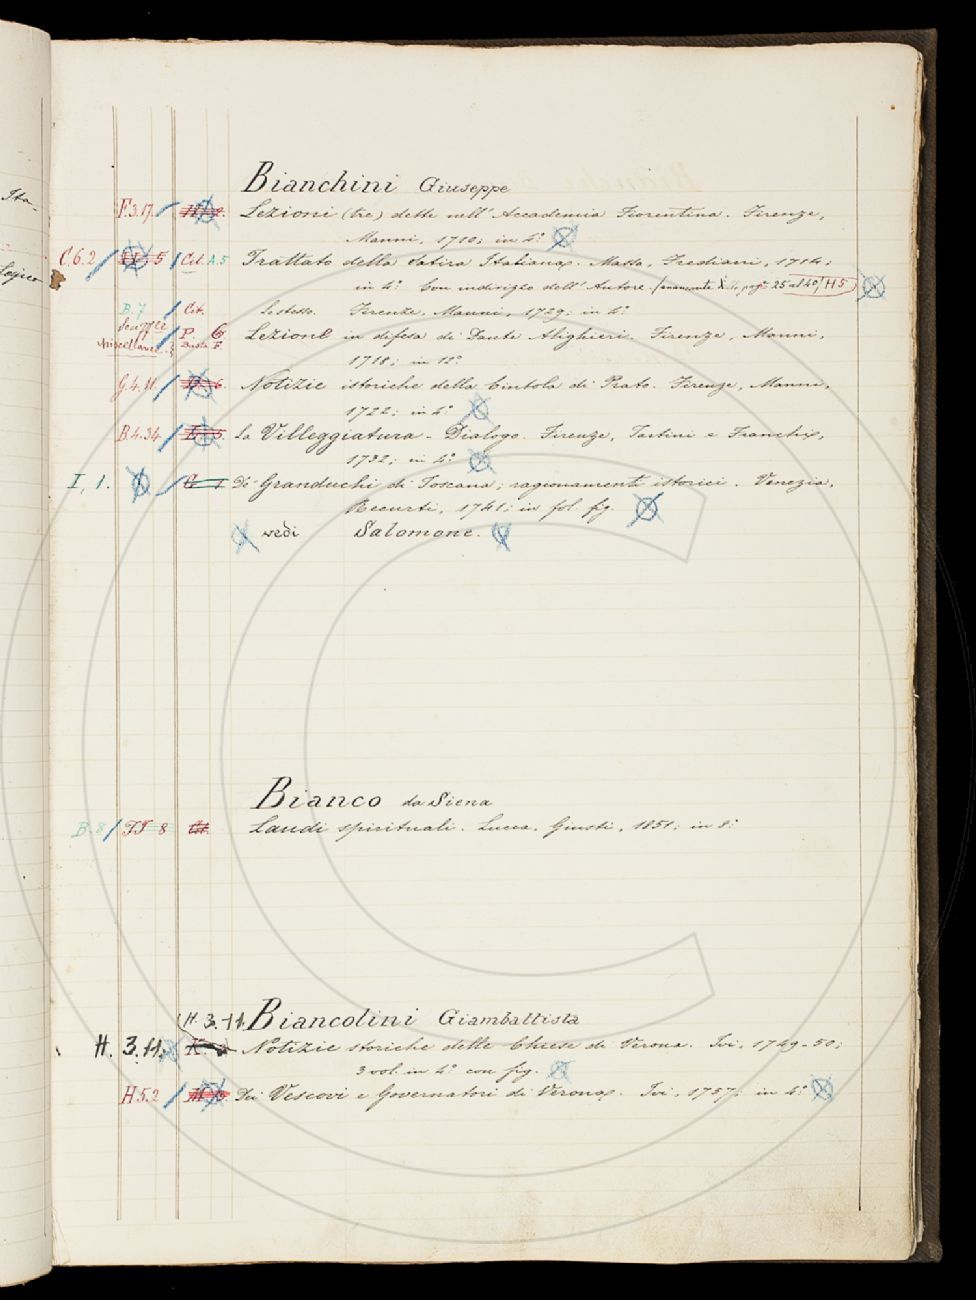 Ita-
Logico
Bianchini Giuseppe
F.3.17. Lezioni (tre) dette nell' Accademia Fiorentina. Firenze,
Manni, 1710; in 4°.
C.6.2 5 Cit. A.5 Trattato della Satira Italiana. Massa, Frediani, 1714;
in 4°. Con indirizzo dell' Autore. 25 al 40/ H5
B.7 Cit. Lo stesso. Firenze, Manni, 1729; in 4°.
Scaffale Miscellanee. P. 6. Busta F. Lezione in difesa di Dante Alighieri. Firenze, Manni,
1718; in 12°.
G.4.11. 6. Notizie istoriche della Cintola di Prato. Firenze, Manni,
1722; in 4°.
B.4.34 5. La Villeggiatura - Dialogo. Firenze, Tartini e Franchi,
1732; in 4°.
I, 1. 1. Dei Granduchi di Toscana; ragionamenti istorici. Venezia,
Recurti, 1741; in fol. fig.
vedi Salomone.
Bianco da Siena
B.8 8 Cit. Laudi spirituali. Lucca, Giusti, 1851; in 8°.
H. 3.-11. Biancolini Giambattista
H. 3.11. Notizie storiche delle Chiese di Verona. Ivi, 1749-50;
3 vol. in 4° con fig.
H5.2 Dei Vescovi e Governatori di Verona. Ivi, 1757; in 4°.